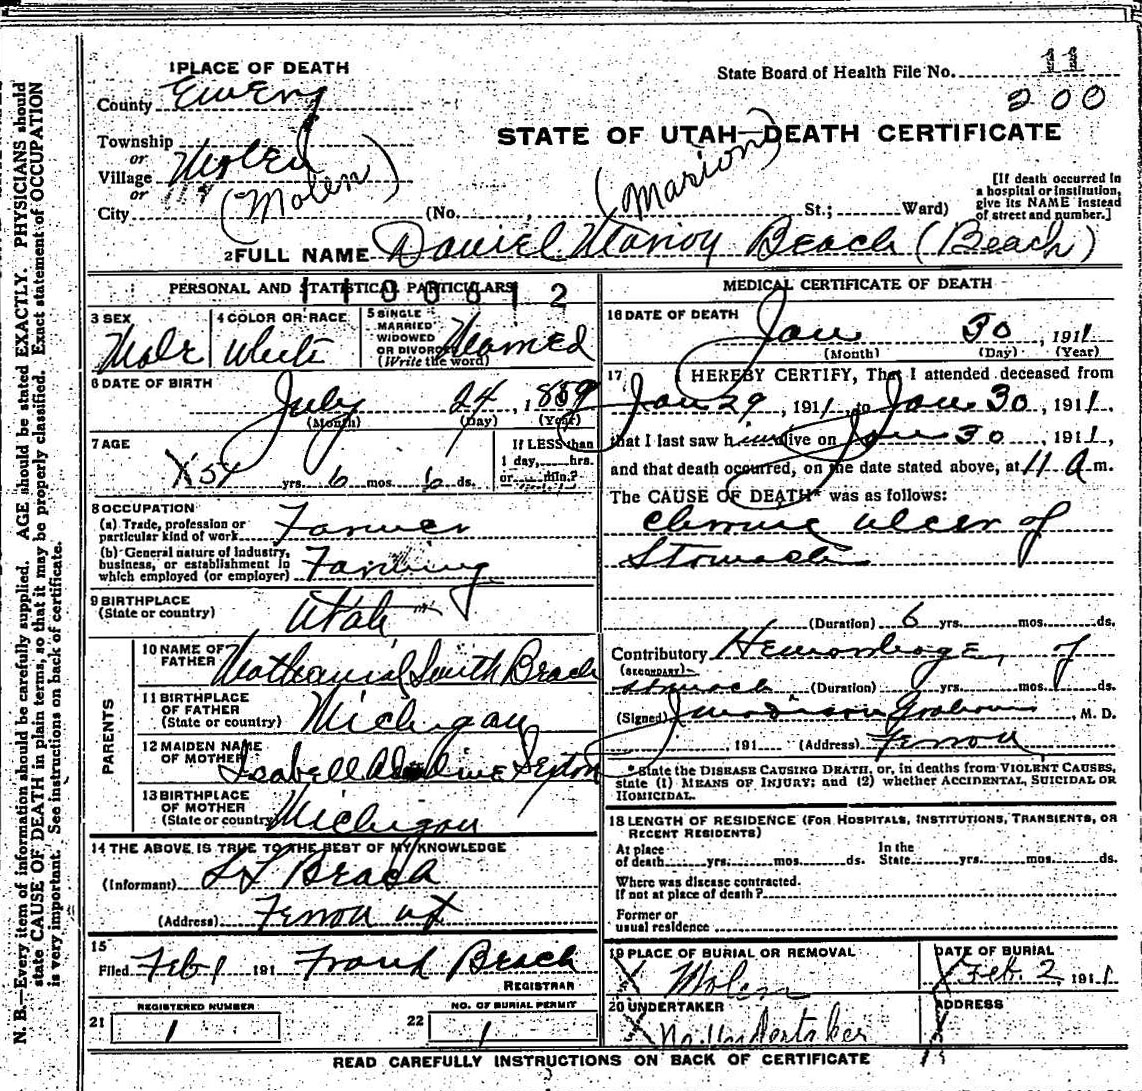 1 PLACE OF DEATH
State Board of Health File No. 11
200
County Emery
STATE OF UTAH—DEATH CERTIFICATE
Township
or
Village Molen
or
(Molen)
City
(No. , St.; Ward)
(Marion)
[If death occurred in
a hospital or institution,
give its NAME instead
of street and number.]
2 FULL NAME Daniel Marion Beach (Beach)
PERSONAL AND STATISTICAL PARTICULARS
3 SEX Male
4 COLOR OR RACE White
5 SINGLE
MARRIED
WIDOWED
OR DIVORCED
(Write the word)
Married
6 DATE OF BIRTH
July 24, 1859
(Month) (Day) (Year)
7 AGE
yrs. 6 mos. 6 ds.
If LESS than
1 day, hrs.
or min.?
8 OCCUPATION
(a) Trade, profession or
particular kind of work Farmer
(b) General nature of industry,
business, or establishment in
which employed (or employer) Farming
9 BIRTHPLACE
(State or country) Utah
PARENTS
10 NAME OF
FATHER Nathanial Smith Beach
11 BIRTHPLACE
OF FATHER
(State or country) Michigan
12 MAIDEN NAME
OF MOTHER Isabell Adaline Sexton
13 BIRTHPLACE
OF MOTHER
(State or country) Michigan
14 THE ABOVE IS TRUE TO THE BEST OF MY KNOWLEDGE
(Informant) Beach
(Address) Ferron ut
15
Filed Feb 1 191 Frank Beach
REGISTRAR
REGISTERED NUMBER
21 1
NO. OF BURIAL PERMIT
22 1
MEDICAL CERTIFICATE OF DEATH
16 DATE OF DEATH
Jan 30, 1911
(Month) (Day) (Year)
17 I HEREBY CERTIFY, That I attended deceased from
Jan 29, 1911, to Jan 30, 1911,
that I last saw him alive on Jan 30, 1911,
and that death occurred, on the date stated above, at 11 a m.
The CAUSE OF DEATH* was as follows:
Chronic ulcer of
Stomach
(Duration) 6 yrs. mos. ds.
Contributory Hemorrhage of
(SECONDARY)
stomach (Duration) yrs. mos. ds.
(Signed) J Madison Graham, M. D.
, 191 (Address) Ferron
*State the DISEASE CAUSING DEATH, or, in deaths from VIOLENT CAUSES,
state (1) MEANS OF INJURY; and (2) whether ACCIDENTAL, SUICIDAL OR
HOMICIDAL.
18 LENGTH OF RESIDENCE (FOR HOSPITALS, INSTITUTIONS, TRANSIENTS, OR
RECENT RESIDENTS)
At place
of death yrs. mos. ds.
In the
State yrs. mos. ds.
Where was disease contracted.
If not at place of death?
Former or
usual residence
19 PLACE OF BURIAL OR REMOVAL
Molen
DATE OF BURIAL
Feb. 2 1911
20 UNDERTAKER
No Undertaker
ADDRESS
READ CAREFULLY INSTRUCTIONS ON BACK OF CERTIFICATE
N. B.—Every item of information should be carefully supplied. AGE should be stated EXACTLY. PHYSICIANS should
state CAUSE OF DEATH in plain terms, so that it may be properly classified. Exact statement of OCCUPATION
is very important. See instructions on back of certificate.